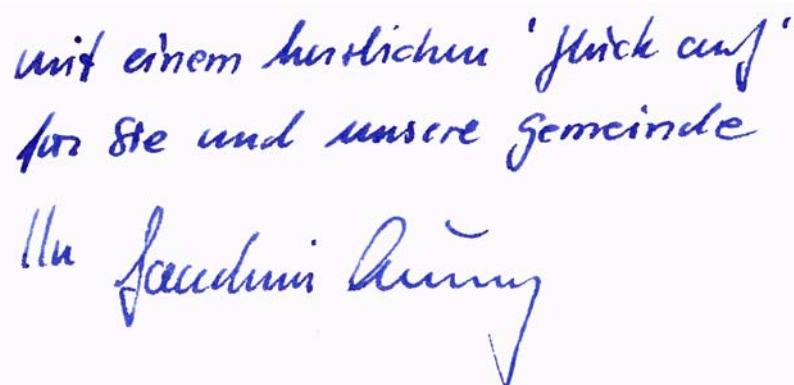 mit einem herzlichen 'Glück auf'
für Sie und unsere Gemeinde
Ihr Joachim